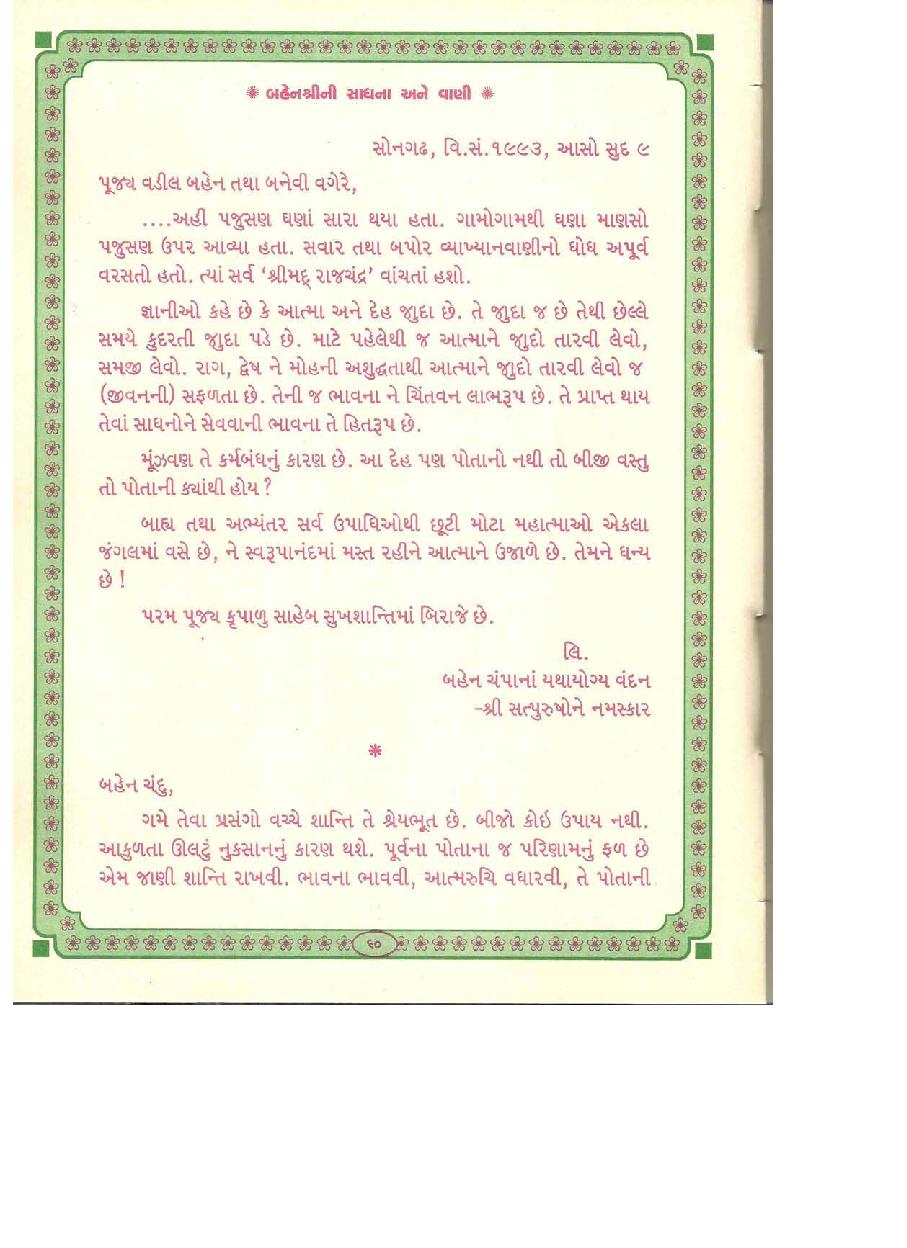 ❋ બહેનશ્રીની સાધના અને વાણી ❋
સોનગઢ, વિ.સં.૧૯૯૩, આસો સુદ ૯
પૂજ્ય વડીલ બહેન તથા બનેવી વગેરે,
....અહીં પજુસણ ઘણાં સારા થયા હતા. ગામોગામથી ઘણા માણસો
પજુસણ ઉપર આવ્યા હતા. સવાર તથા બપોર વ્યાખ્યાનવાણીનો ધોધ અપૂર્વ
વરસતો હતો. ત્યાં સર્વ ‘શ્રીમદ્ રાજચંદ્ર’ વાંચતાં હશો.
જ્ઞાનીઓ કહે છે કે આત્મા અને દેહ જુદા છે. તે જુદા જ છે તેથી છેલ્લે
સમયે કુદરતી જુદા પડે છે. માટે પહેલેથી જ આત્માને જુદો તારવી લેવો,
સમજી લેવો. રાગ, દ્વેષ ને મોહની અશુદ્ધતાથી આત્માને જુદો તારવી લેવો જ
(જીવનની) સફળતા છે. તેની જ ભાવના ને ચિંતવન લાભરૂપ છે. તે પ્રાપ્ત થાય
તેવાં સાધનોને સેવવાની ભાવના તે હિતરૂપ છે.
મૂંઝવણ તે કર્મબંધનું કારણ છે. આ દેહ પણ પોતાનો નથી તો બીજી વસ્તુ
તો પોતાની ક્યાંથી હોય ?
બાહ્ય તથા અભ્યંતર સર્વ ઉપાધિઓથી છૂટી મોટા મહાત્માઓ એકલા
જંગલમાં વસે છે, ને સ્વરૂપાનંદમાં મસ્ત રહીને આત્માને ઉજાળે છે. તેમને ધન્ય
છે !
પરમ પૂજ્ય કૃપાળુ સાહેબ સુખશાન્તિમાં બિરાજે છે.
લિ.
બહેન ચંપાનાં યથાયોગ્ય વંદન
-શ્રી સત્પુરુષોને નમસ્કાર
❋
બહેન ચંદુ,
ગમે તેવા પ્રસંગો વચ્ચે શાન્તિ તે શ્રેયભૂત છે. બીજો કોઇ ઉપાય નથી.
આકુળતા ઊલટું નુકસાનનું કારણ થશે. પૂર્વના પોતાના જ પરિણામનું ફળ છે
એમ જાણી શાન્તિ રાખવી. ભાવના ભાવવી, આત્મરુચિ વધારવી, તે પોતાની
૬૦